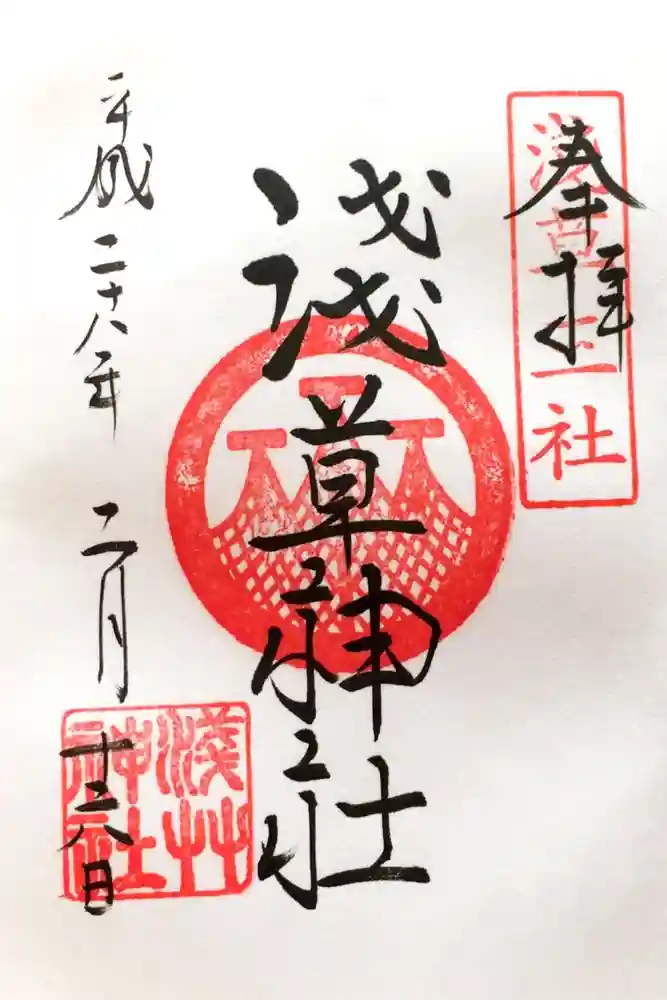 奉拝
浅草三社
淺草神社
平成二十八年 二月 十六日
淺艸
神社